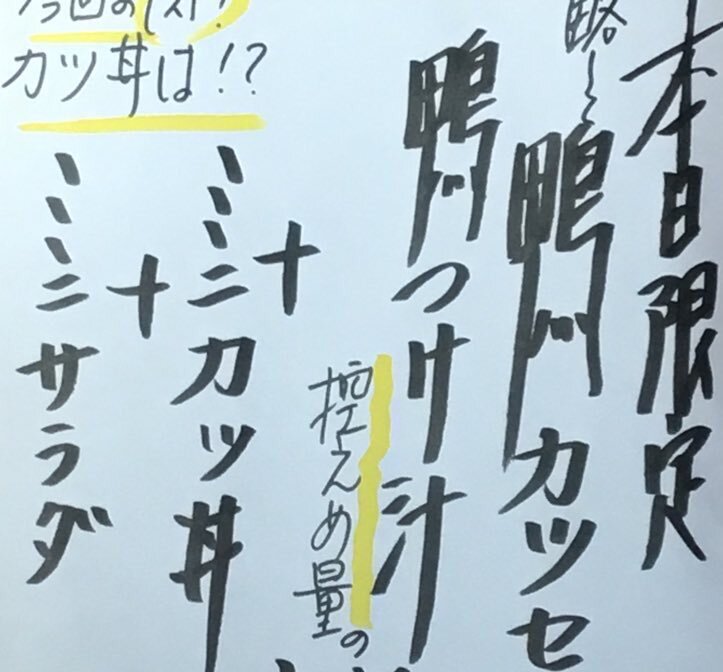 本日限定
略し〜
鴨カツセ
鴨つけ汁
控えめ量の
+
ミニカツ丼
+
ミニサラダ
カツ丼は!?